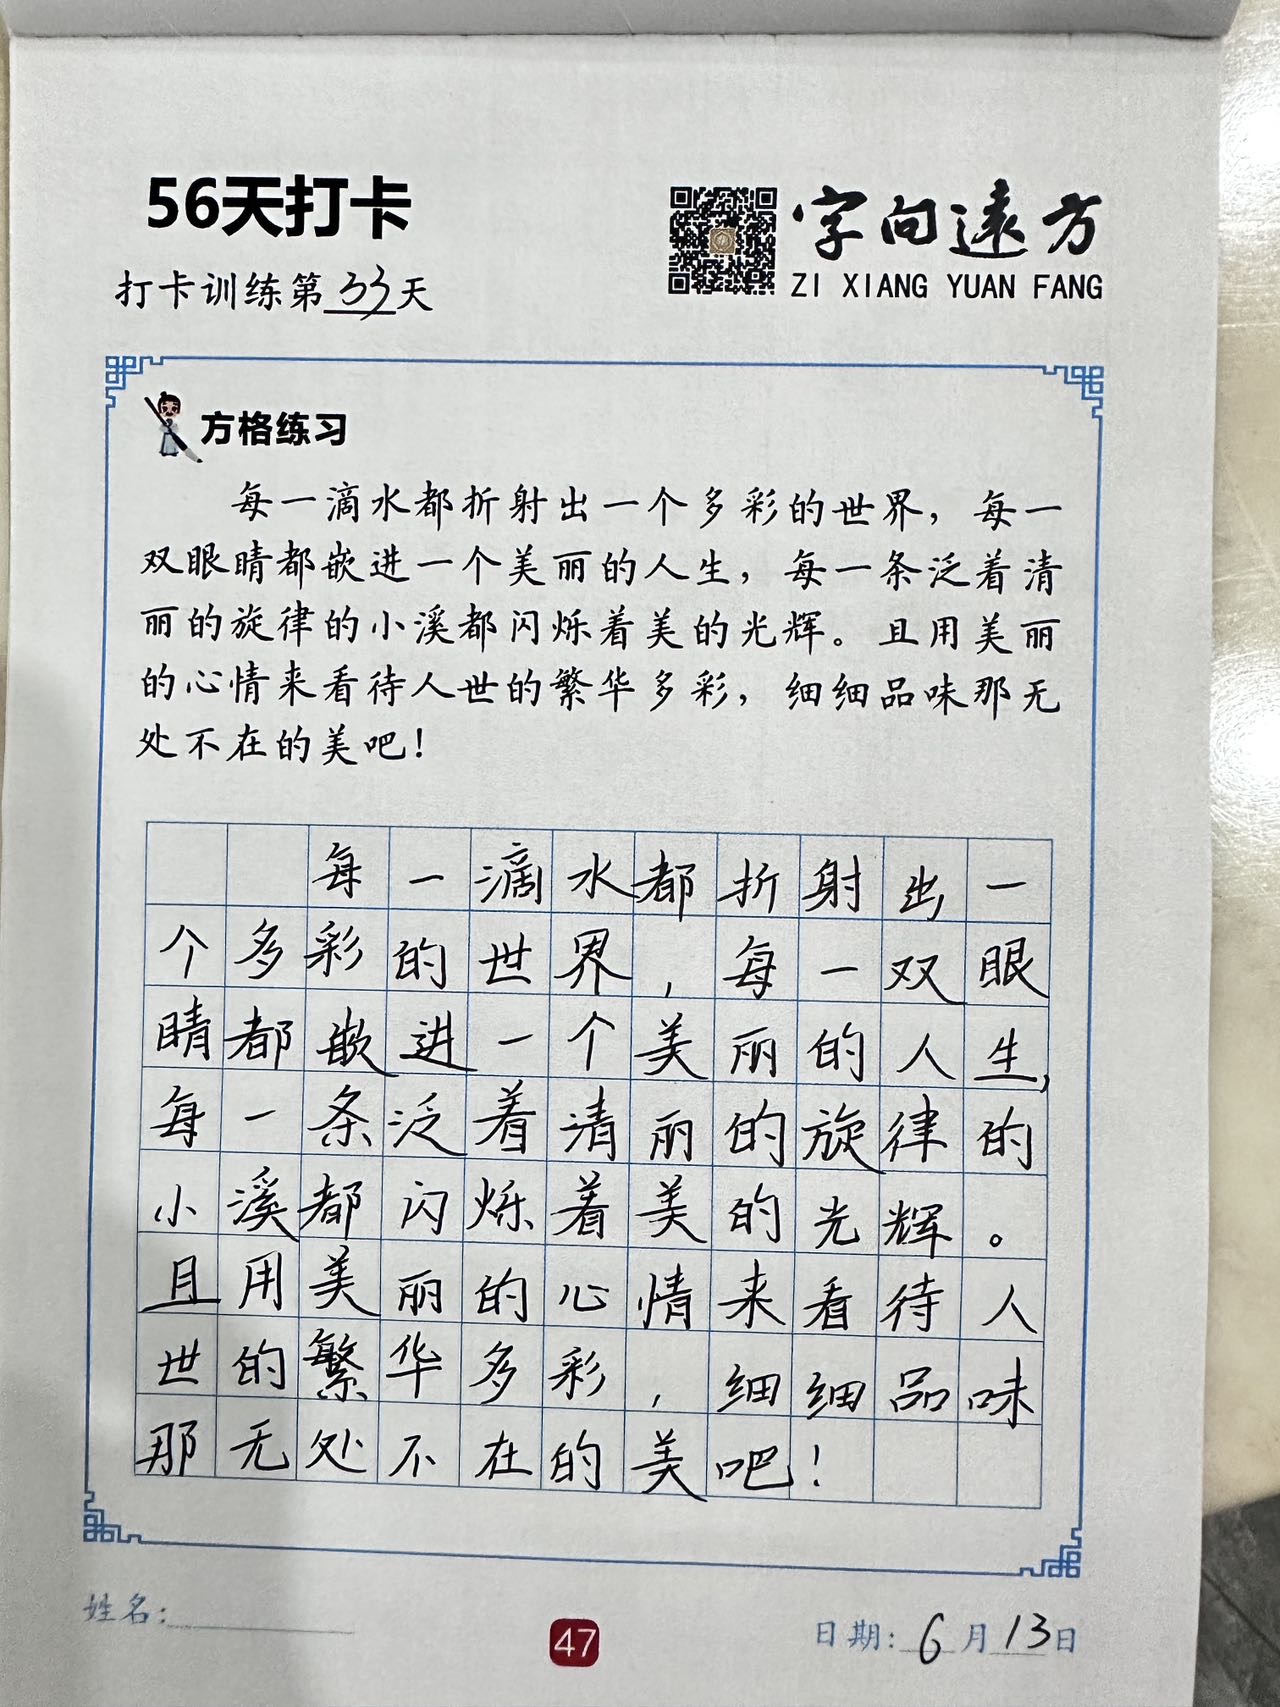 56天打卡
字向远方
ZI XIANG YUAN FANG
打卡训练第33天
方格练习
每一滴水都折射出一个多彩的世界，每一
双眼睛都嵌进一个美丽的人生，每一条泛着清
丽的旋律的小溪都闪烁着美的光辉。且用美丽
的心情来看待人世的繁华多彩，细细品味那无
处不在的美吧！
每一滴水都折射出一
个多彩的世界，每一双眼
睛都嵌进一个美丽的人生，
每一条泛着清丽的旋律的
小溪都闪烁着美的光辉。
且用美丽的心情来看待人
世的繁华多彩，细细品味
那无处不在的美吧！
姓名：
47
日期：6月13日